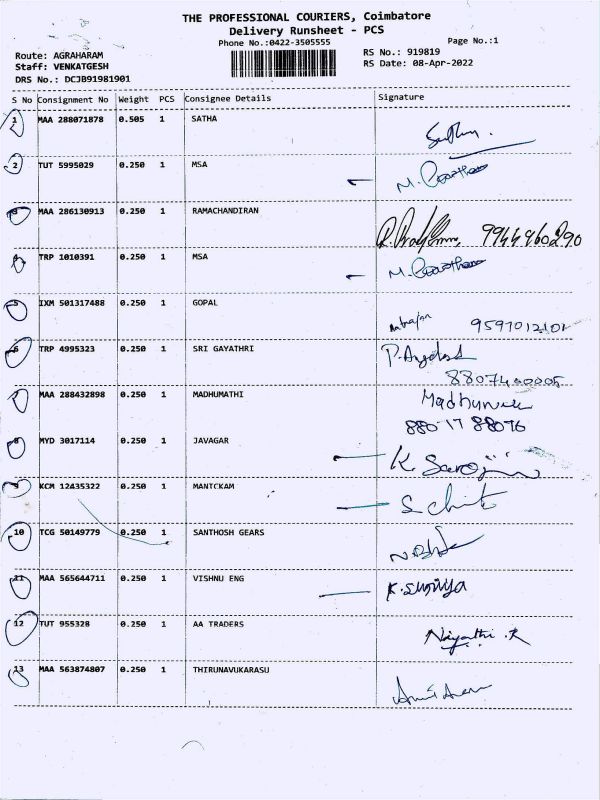 THE PROFESSIONAL COURIERS, Coimbatore
Delivery Runsheet - PCS
Phone No.:0422-3505555
Page No.:1
Route: AGRAHARAM
RS No.: 919819
Staff: VENKATGESH
RS Date: 08-Apr-2022
DRS No.: DCJB91981901
S No Consignment No Weight PCS Consignee Details Signature
1 MAA 288071878 0.505 1 SATHA
2 TUT 5995029 0.250 1 MSA
3 MAA 286130913 0.250 1 RAMACHANDIRAN
9944960290
4 TRP 1010391 0.250 1 MSA
5 IXM 501317488 0.250 1 GOPAL
9597012101
6 TRP 4995323 0.250 1 SRI GAYATHRI
8807400005
7 MAA 288432898 0.250 1 MADHUMATHI
88017 88076
8 MYD 3017114 0.250 1 JAVAGAR
K. Sarojini
9 KCM 12435322 0.250 1 MANTCKAM
10 TCG 50149779 0.250 1 SANTHOSH GEARS
11 MAA 565644711 0.250 1 VISHNU ENG
K. Suriya
12 TUT 955328 0.250 1 AA TRADERS
Niyathi .R
13 MAA 563874807 0.250 1 THIRUNAVUKARASU